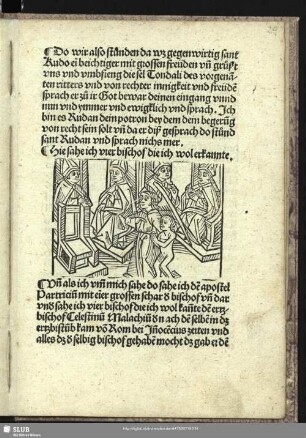 ¶Do wir also stůnden da wz gegenwirtig sant
Rudo eī beichtiger mit grossen freuden vñ grůst
vns vnd vmbfieng die sel Tondali des vorgenā-
ten ritters vnd von rechter innigkeit vnd freudē
sprach er zů ir Got bewar deinen eingang vnnd
nun vnd ymmer vnd ewigklich vnd sprach. Ich
bin es Rudan dein potron bey dem dem begerūg
von recht sein solt vñ da er diß gesprach do stůnd
sant Rudan vnd sprach nichs mer.
¶Hie sahe ich vier bischof die ich wol erkannte.
¶Vñ als ich vm̄ mich sahe do sahe ich dē apostel
Partricuȝ mit eīer grossen schar d bischof vñ dar
vnd sahe ich vier bischof die ich wol kañte dē ertz
bischof Celestinū Malachiū d n ach dē selbē in dz
ertzbistůb kam vō Rom bei Jñocēcius zeiten vnd
alles dz d selbig bischof gehabē mocht dz gab er dē
SLUB
Wir führen Wissen.